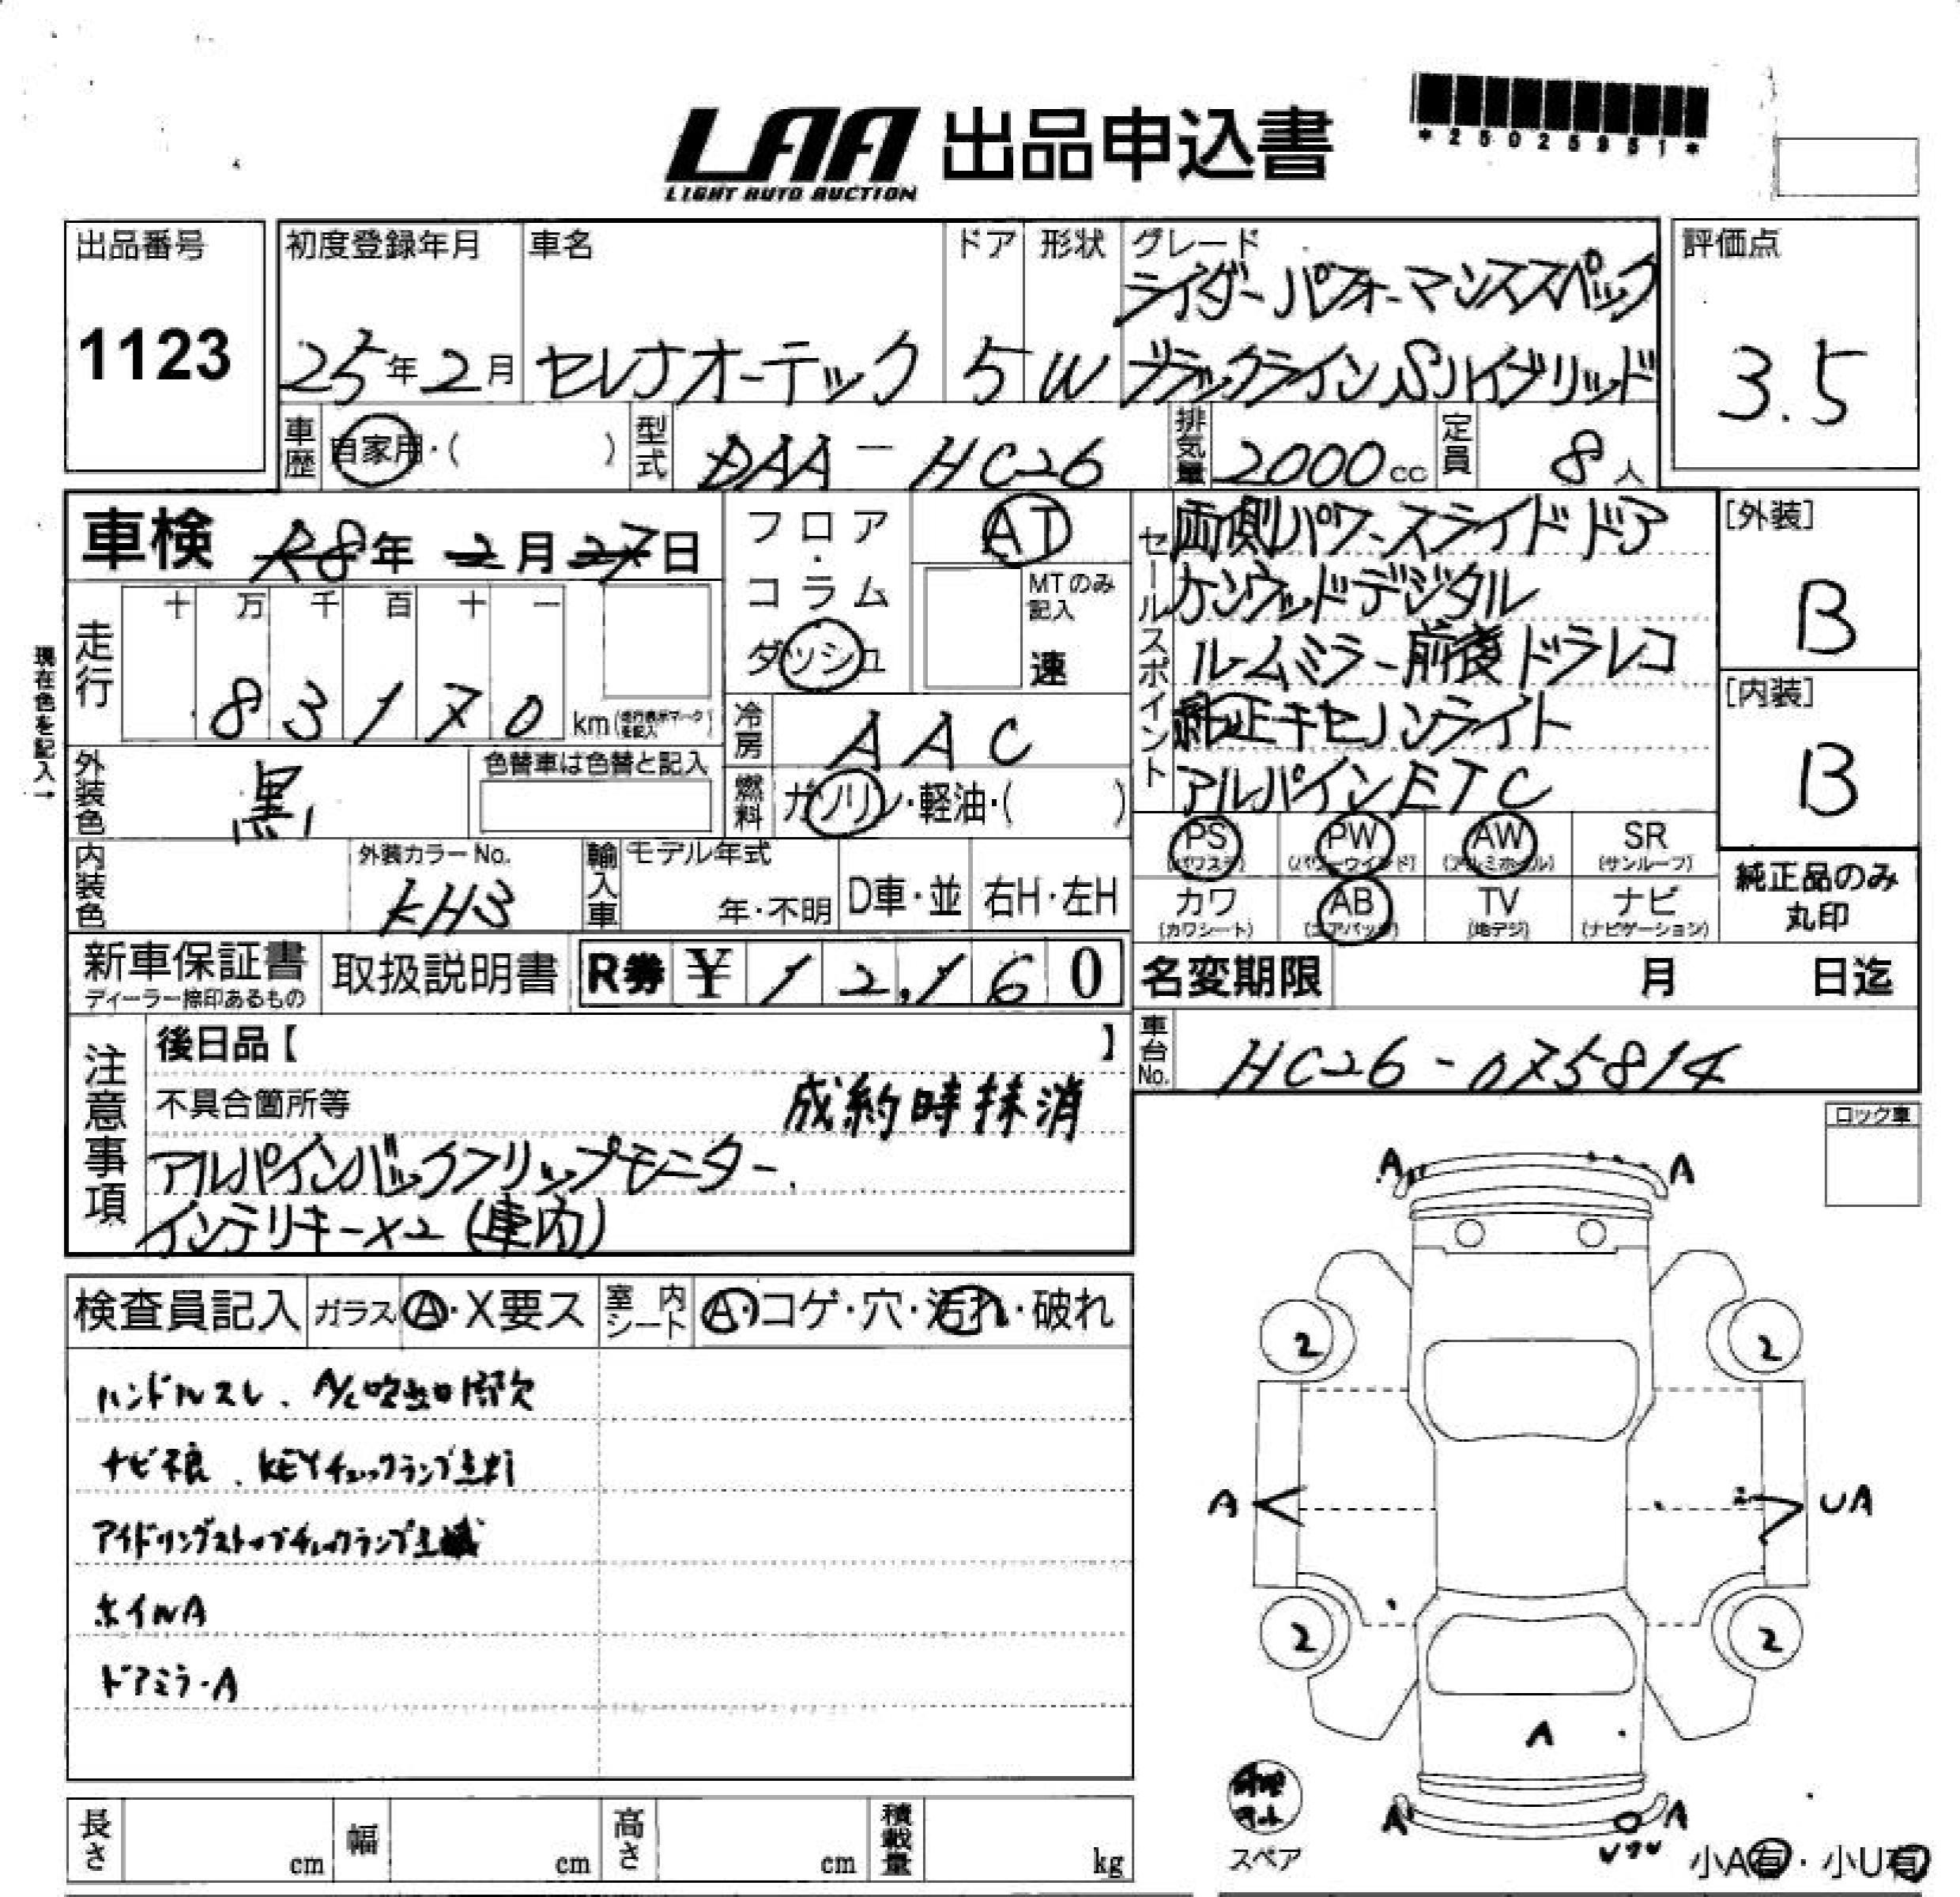 LAA 出品申込書
LIGHT AUTO AUCTION
*25025951*
出品番号
1123
初度登録年月
25年2月
車名
セレナオーテック
ドア
5
形状
W
グレード
ライダーパフォーマンススペック
ブラックラインSハイブリッド
評価点
3.5
車歴
自家用・( )
型式
DAA-HC26
排気量
2000cc
定員
8人
車検 R8年2月27日
走行
十 万 千 百 十 一
83170 km
現在色を記入→
フロア・コラム
ダッシュ
AT
MTのみ記入
速
冷房
AAC
燃料
ガソリン・軽油・( )
外装色
黒
色替車は色替と記入
内装色
外装カラーNo.
KH3
輸入車
モデル年式
年・不明
D車・並
右H・左H
セールスポイント
両側パワースライドドア
ケンウッドデジタル
ルームミラー前後ドラレコ
純正キセノンライト
アルパインETC
[外装]
B
[内装]
B
PS (パワステ)
PW (パワーウインド)
AW (アルミホイル)
SR (サンルーフ)
カワ (カワシート)
AB (エアバッグ)
TV (地デジ)
ナビ (ナビゲーション)
純正品のみ丸印
新車保証書
ディーラー捺印あるもの
取扱説明書
R券 ¥12,160
名変期限 月 日迄
車台No.
HC26-075814
注意事項
後日品【 】
不具合箇所等
成約時抹消
アルパインバックフリップモニター
インテリキー×2(車内)
ロック車
検査員記入
ガラス A・X要ス
室内シート A・コゲ・穴・汚れ・破れ
ハンドルスレ、A/C吹出口部欠
ナビ不良、KEYチェックランプ点灯
アイドリングストップチェックランプ点滅
ホイルA
ドアミラーA
A A
2 2
A UA
2 2
A
A A
スペア
小A有・小U有
長さ cm
幅 cm
高さ cm
積載量 kg